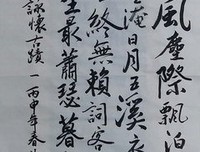 風塵際飄泊
淹日月五溪衣
終無賴詞客
生最蕭瑟暮
詠懷古蹟一丙申年春